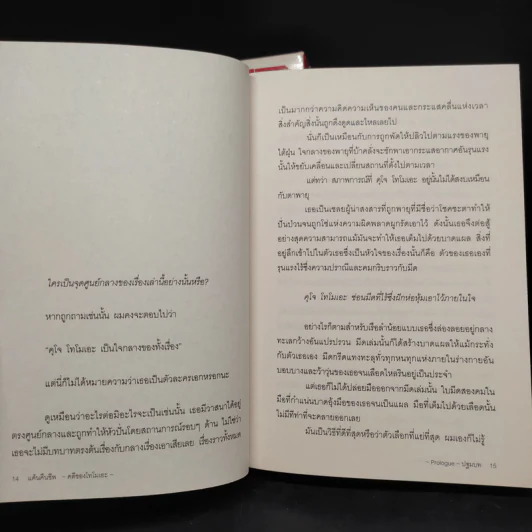 ใครเป็นจุดศูนย์กลางของเรื่องเล่านี้อย่างนั้นหรือ?
หากถูกถามเช่นนั้น ผมคงจะตอบไปว่า
"คุโจ โทโมเอะ เป็นใจกลางของทั้งเรื่อง"
แต่นี่ก็ไม่ได้หมายความว่าเธอเป็นตัวละครเอกหรอกนะ
ดูเหมือนว่าอะไรต่อมิอะไรจะเป็นเช่นนั้น เธอมีวาสนาได้อยู่
ตรงศูนย์กลางและถูกทำให้หัวปั่นโดยสถานการณ์รอบๆ ด้าน ไม่ใช่ว่า
เธอจะไม่มีบทบาทตรงต้นเรื่องกับกลางเรื่องเอาเสียเลย เรื่องราวทั้งหมด
14 แค้นคืนชีพ – คดีของโทโมเอะ –
เป็นมากกว่าความคิดความเห็นของคนและกระแสคลื่นแห่งเวลา
สิ่งสำคัญสิ่งนั้นถูกดึงดูดและไหลเลยไป
นั่นก็เป็นเหมือนกับการถูกพัดให้ปลิวไปตามแรงของพายุ
ไต้ฝุ่น ใจกลางของพายุที่บ้าคลั่งจะชักพาเอากระแสอากาศอันรุนแรง
นั้นให้ขยับเคลื่อนและเปลี่ยนสถานที่ตั้งไปตามเวลา
แต่ทว่า สภาพการณ์ที่ คุโจ โทโมเอะ อยู่นั้นไม่ได้สงบเหมือน
กับตาพายุ
เธอเป็นเชลยผู้น่าสงสารที่ถูกพายุที่มีชื่อว่าโชคชะตาทำให้
ปั่นป่วนจนถูกโซ่แห่งความผิดพลาดผูกรัดเอาไว้ ดังนั้นเธอจึงต่อสู้
อย่างสุดความสามารถแม้มันจะทำให้เธอเต็มไปด้วยบาดแผล สิ่งที่
อยู่ลึกเข้าไปในตัวเธอซึ่งเป็นหัวใจของเรื่องนั้นก็คือ ตัวของเธอเองที่
รุนแรงไร้ซึ่งความปรานีและคมกริบราวกับมีด
คุโจ โทโมเอะ ซ่อนมีดที่ไร้ซึ่งฝักห่อหุ้มเอาไว้ภายในใจ
อย่างไรก็ตามสำหรับเรือลำน้อยแบบเธอซึ่งล่องลอยอยู่กลาง
ทะเลกว้างอันแปรปรวน มีดเล่มนั้นก็ได้สร้างบาดแผลให้แม้กระทั่ง
กับตัวเธอเอง มีดกรีดแทงทะลุทั่วทุกหนทุกแห่งภายในร่างกายอัน
บอบบางและวาวุ่นของเธอจนเลือดไหลรินอยู่เป็นประจำ
แต่เธอก็ไม่ได้ปล่อยมือออกจากมีดเล่มนั้น ใบมีดสองคมใน
มือที่กำแน่นบาดอุ้งมือของเธอจนเป็นแผล มือที่เต็มไปด้วยเลือดนั้น
ไม่มีทีท่าที่จะคลายออกเลย
มันเป็นวิธีที่ดีที่สุดหรือว่าตัวเลือกที่แย่ที่สุด ผมเองก็ไม่รู้
– Prologue – ปฐมบท 15